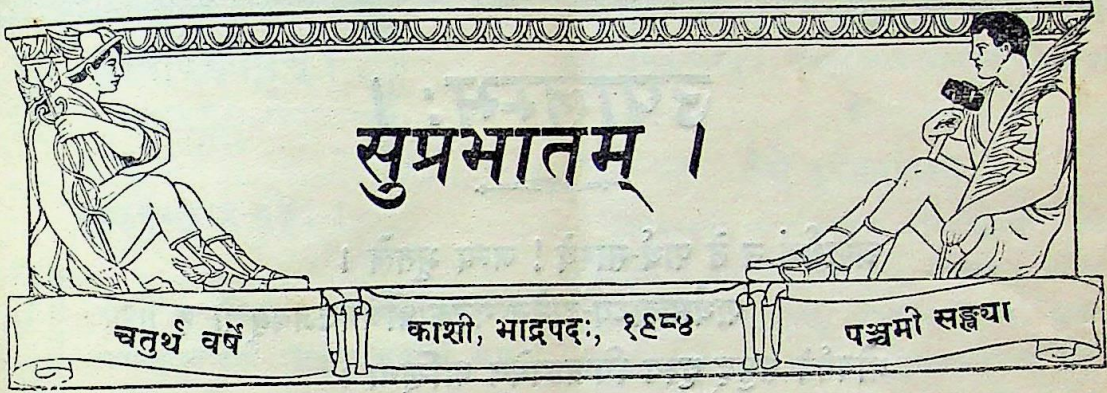 सुप्रभातम् ।
चतुर्थ वर्षे
काशी, भाद्रपदः, १९८४
पञ्चमी सङ्ख्या